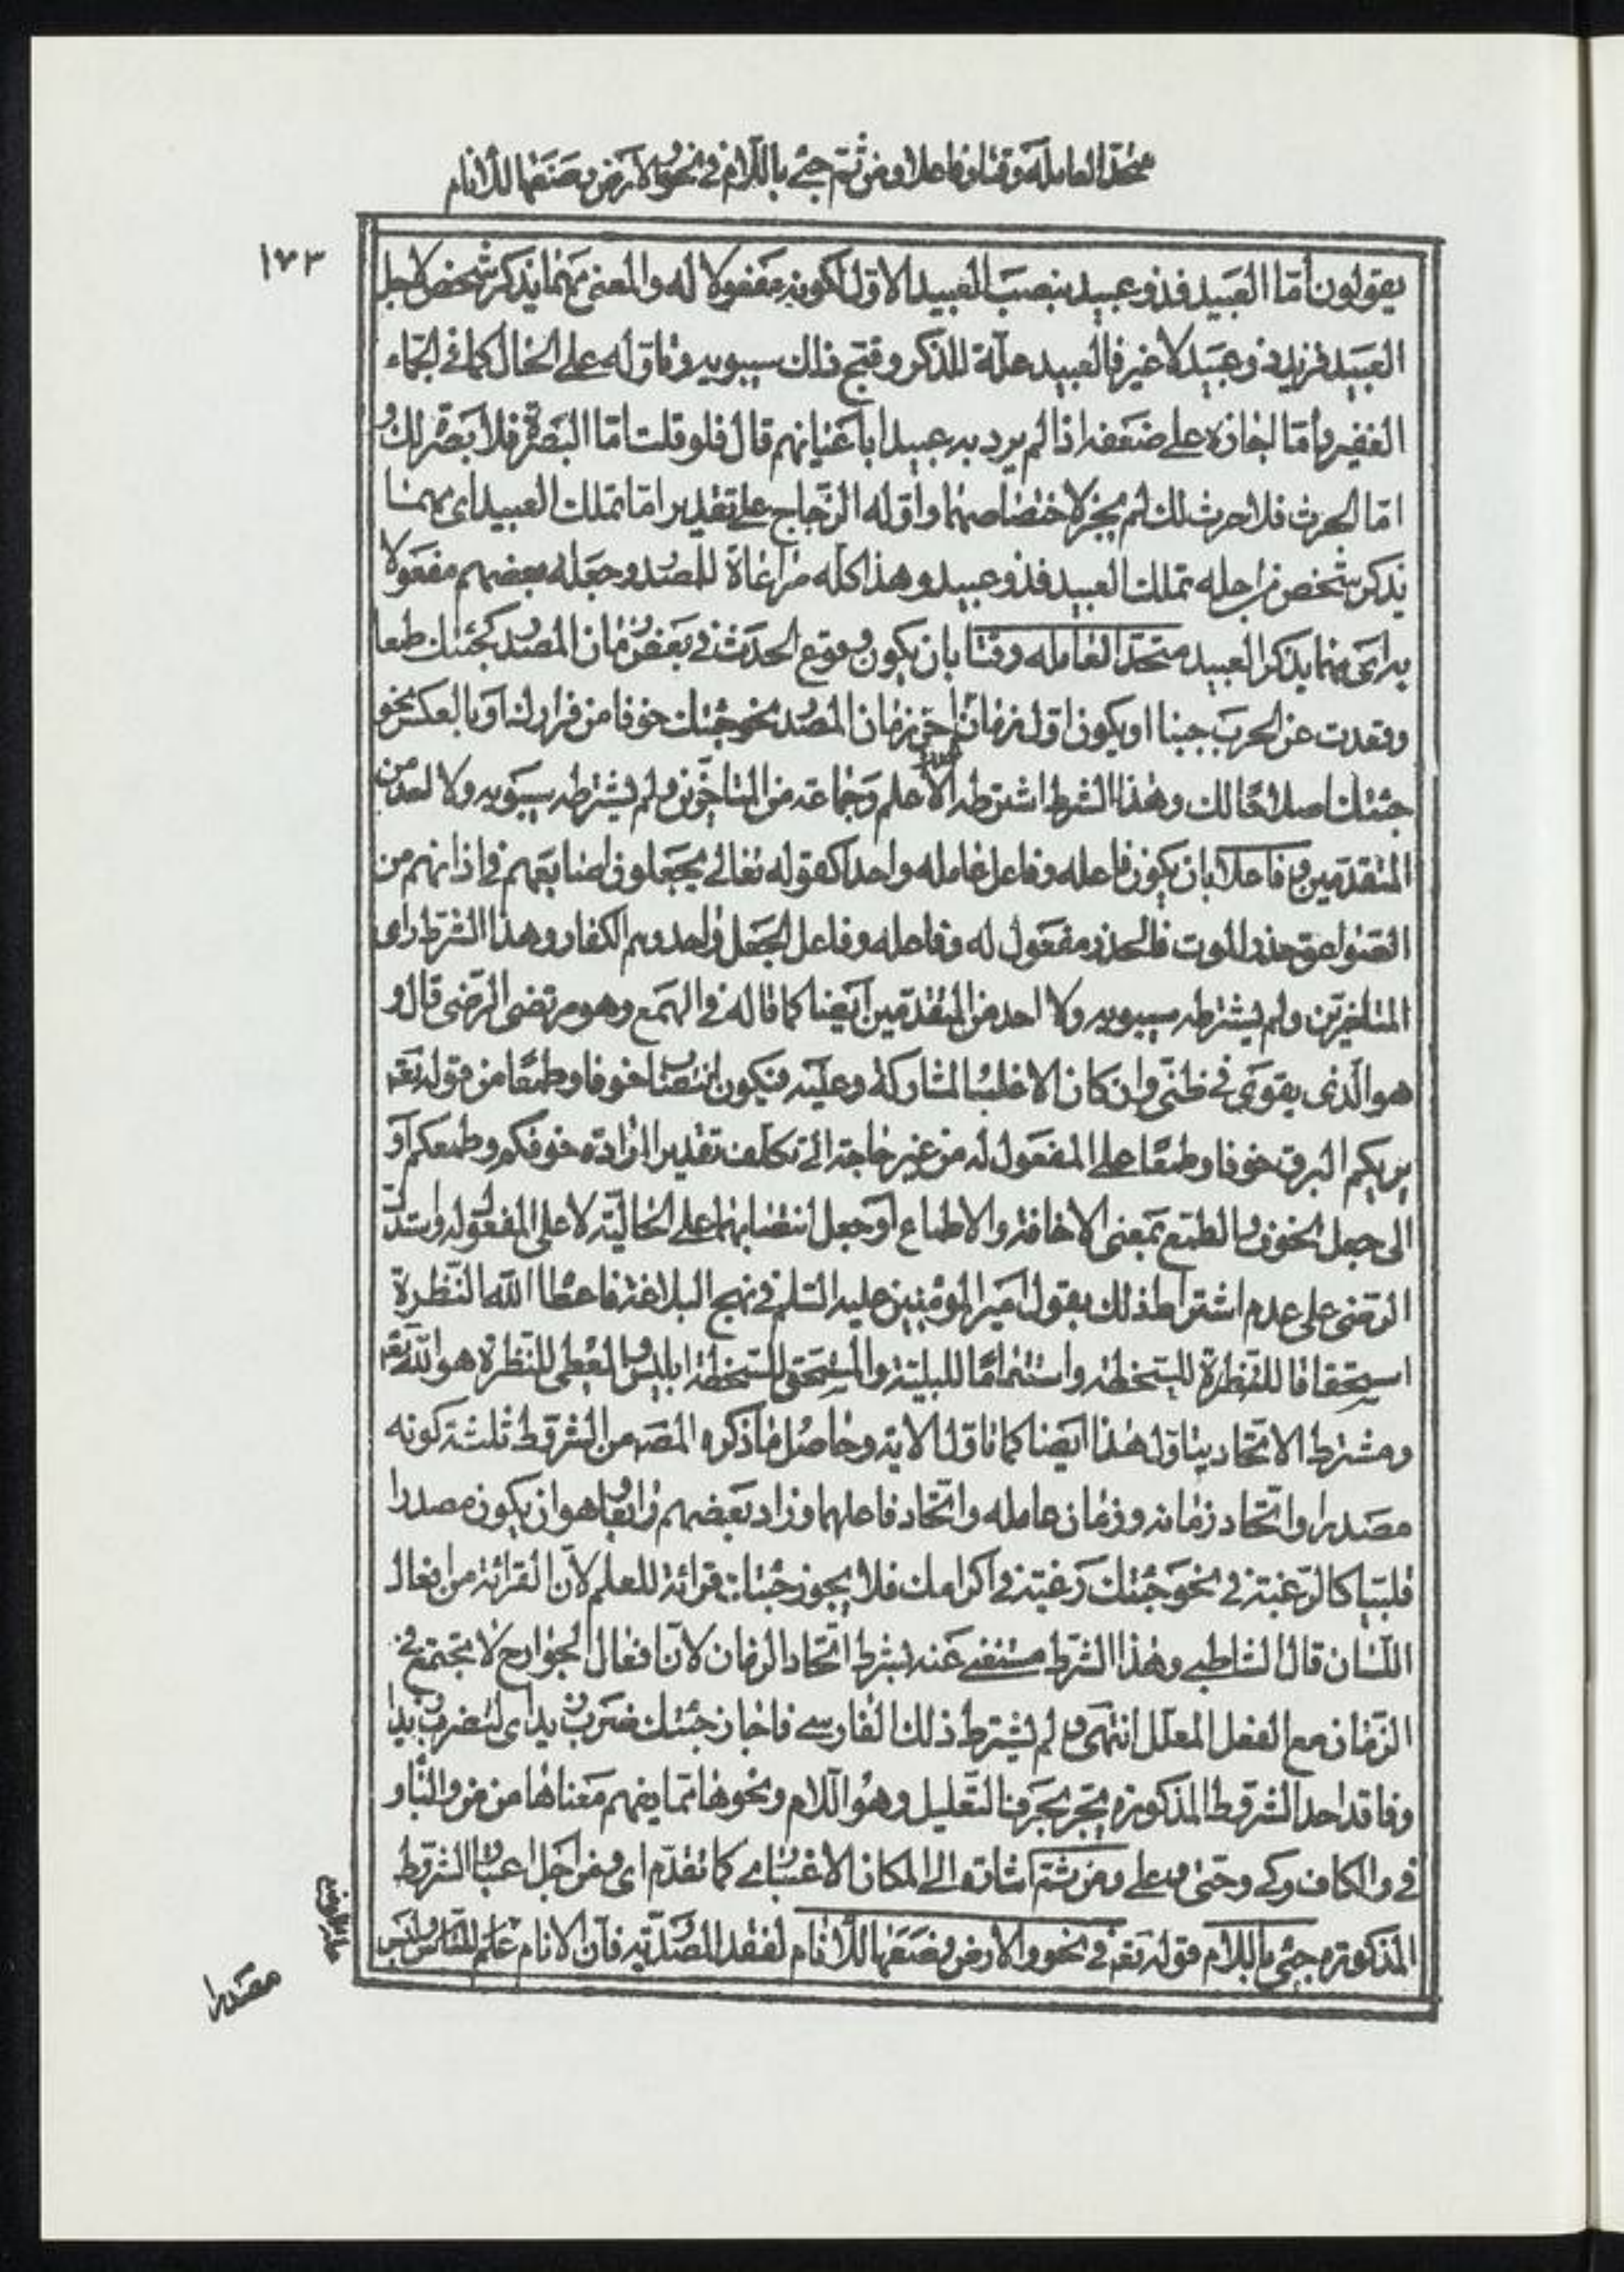 متحدا لعامله وقتا وفاعلا ومن ثم جئ باللام في نحو والارض وضعها للانام
١٧٣
يقولون أمّا العبيد فذو عبيد بنصب العبيد الاول لكونه مفعولا له والمعنى مهما يذكر شخص لاجل
العبيد فزيد ذو عبيد لا غير فالعبيد علة للذكر وقبح ذلك سيبويه وتاوله على الحال كما في الجمّاء
الغفير وأمّا اجازه على ضعفه اذا لم يرد به عبيدا باعيانهم قال فلو قلت امّا البصرة فلا بصرة لك و
امّا الحرث فلا حرث لك لم يجز لاختصاصهما واوّله الزّجاج على تقدير امّا تملك العبيد اى مهما
يذكر شخص من اجله تملك العبيد فذو عبيد وهذا كله مراعاة للمصدر وجعله بعضهم مفعولا
به اى مهما يذكر العبيد متحدا لعامله وقتا بان يكون وقوع الحدث في بعض زمان المصدر كجئتك طمعا
وقعدت عن الحرب جبنا او يكون اول زمان الحدث اخر زمان المصدر نحو جئتك خوفا من فرارك او بالعكس نحو
جئتك اصلاحًا لك وهذا الشرط اشترطه الاعلم وجماعة من المتاخّرين ولم يشترطه سيبويه ولا احد من
المتقدّمين وفاعلا بان يكون فاعله وفاعل عامله واحدا كقوله تعالى يجعلون اصابعهم في اذانهم من
الصّواعق حذر الموت فالحذر مفعول له وفاعله وفاعل الجعل واحد وهم الكفار وهذا الشرط راى
المتاخرين ولم يشترطه سيبويه ولا احد من المتقدّمين ايضا كما قاله في الهمع وهو مرتضى الرّضى قال و
هو الّذى يقوى في ظنّى وان كان الاغلب المشاركة وعليه فيكون انتصاب خوفا وطمعًا من قوله تعم
يريكم البرق خوفا وطمعًا على المفعول له من غير حاجة الى تكلف تقدير ارادة خوفكم وطمعكم او
الى جعل الخوف والطّمع بمعنى الاخافة والاطماع او جعل انتصابهما على الحاليّة لا على المفعول له واستدلّ
الرّضى على عدم اشتراط ذلك بقول امير المؤمنين عليه السّلم في نهج البلاغة فاعطا الله النّظرة
استحقاقا للسّخطة واستتمامًا للبليّة والمستحق للسّخطة ابليس والمعطى للنّظرة هو الله تعم
ومشترط الاتّحاد يتاوّل هذا ايضا كما تاوّل الاية وحاصل ما ذكره المصم من الشّروط ثلثة كونه
مصدرا واتّحاد زمانه وزمان عامله واتّحاد فاعلهما وزاد بعضهم رابعا وهو ان يكون مصدرا
قلبيّا كالرّغبة في نحو جئتك رغبة في اكرامك فلا يجوز جئتك قرائة للعلم لانّ القرائة من افعال
اللّسان قال الشاطبى وهذا الشّرط مستغنى عنه بشرط اتّحاد الزمان لانّ افعال الجوارح لا تجتمع في
الزّمان مع الفعل المعلّل انتهى ولم يشترط ذلك الفارسى فاجاز جئتك ضرب زيد اى لتضرب زيدا
وفاقد احد الشّروط المذكورة يجر بحرف التّعليل وهو اللّام ونحوها ممّا يفهم معناها من من والبا و
في والكاف وكى وحتّى وعلى ومن ثمّ اشارة الى المكان الاعتبارى كما تقدّم اى ومن اجل اعتبار الشّروط
المذكورة جئ باللام في قوله تعم في نحو والارض وضعها للانام لفقد المصدّريّة فانّ الانام علم للنّاس وليس
مصدرا